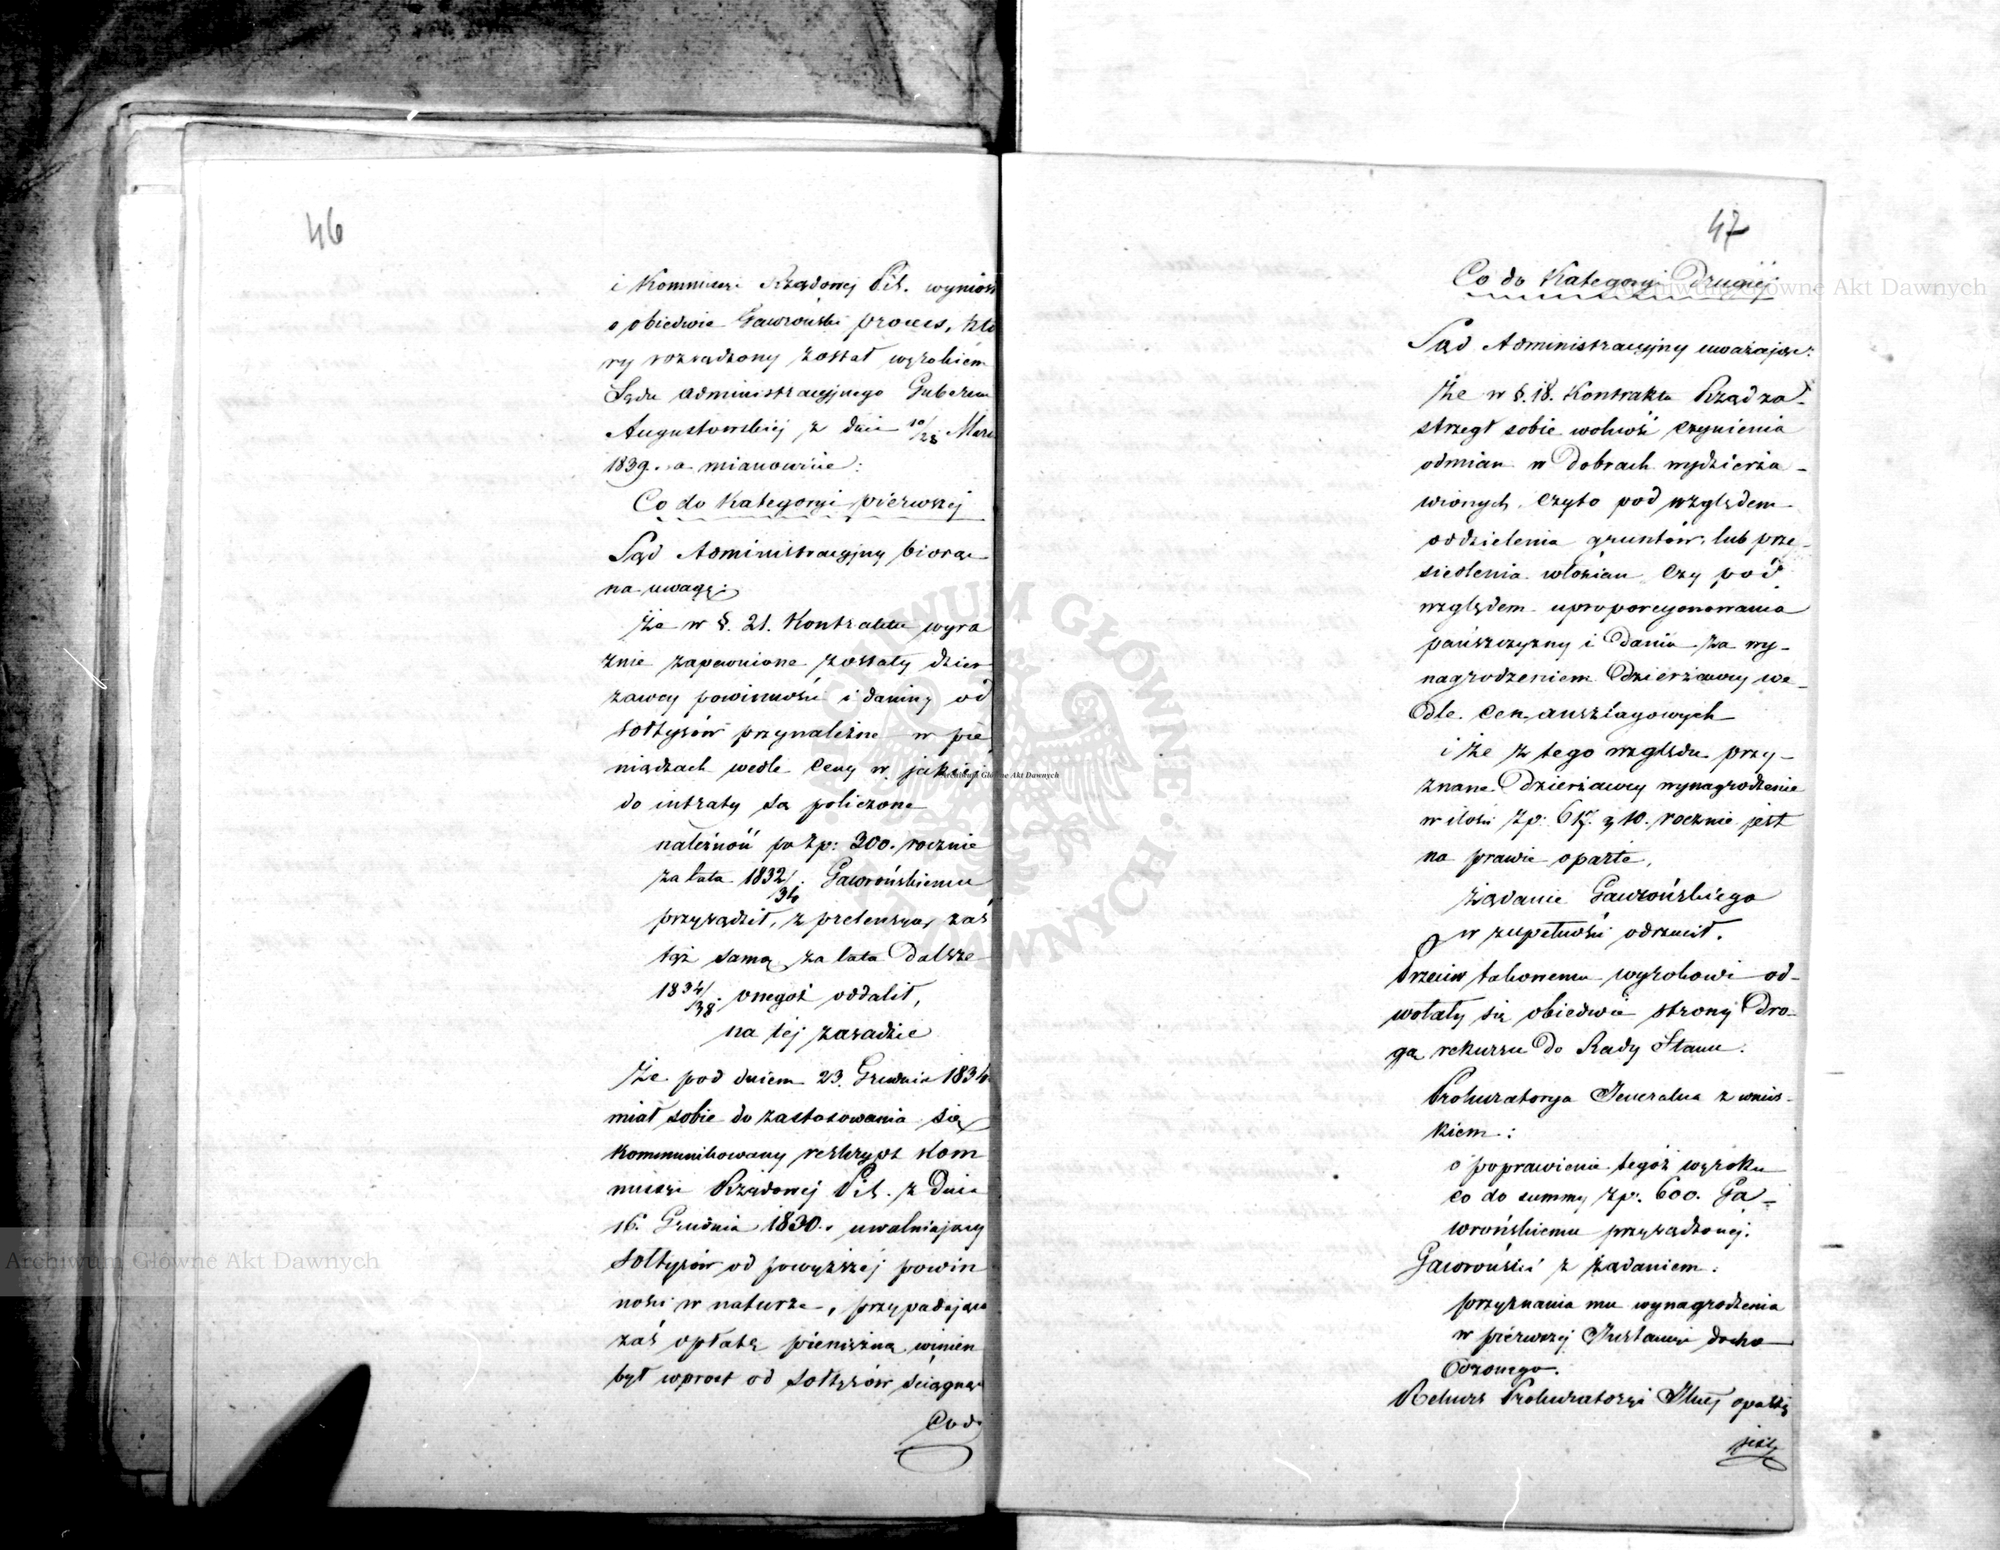 46
i Kommissyi Rządowej P. i S. wyniosł
o obiedwie Gawroński proces, któ
ry rozsądzony został wyrokiem
Sądu Administracyjnego Gubernii
Augustowskiej z dnia 10/22 Marca
1839. a mianowicie:
Co do Kategoryi pierwszej
Sąd Administracyjny biorąc
na uwagę:
że w §. 21. Kontraktu wyra
źnie zapewnione zostały dzier
żawcy powinności i daniny od
sołtysów przynależne w pie
niądzach wedle Ceny w jakiej
do intraty są policzone
należność po zp: 300. rocznie
za lata 1832/34. Gawrońskiemu
przysądził, z pretensyą zaś
tąż samą za lata dalsze
1834/38. onegoż oddalił,
na tej zasadzie
że pod dniem 23. Grudnia 1834
miał sobie do zastosowania się
kommunikowany reskrypt Kom
missyi Rządowej P. i S. z dnia
16. Grudnia 1830. uwalniający
Sołtysów od powyższej powin
ności w naturze, przypadającą
zaś opłatę pieniężną winien
był wprost od Sołtysów ściągnąć
Co do
47
Co do Kategoryi Drugiej
Sąd Administracyjny uważając:
że w §. 18. Kontraktu Rząd za-
strzegł sobie wolność czynienia
odmian w Dobrach wydzierża-
wionych. Czyto pod względem
oddzielenia gruntów, lub prze-
siedlenia włościan Czy pod
względem uproporcyonowania
pańszczyzny i Danin za wy-
nagrodzeniem Dzierżawcy we-
dle Cen anszlagowych
i że z tego względu przy-
znane Dzierżawcy wynagrodzenie
w ilości zp: 617. g 10. rocznie jest
na prawie oparte,
żądanie Gawrońskiego
w zupełności odrzucił.
Przeciw takowemu wyrokowi od-
wołały się obiedwie strony Dro-
gą rekursu do Rady Stanu.
Prokuratorya Jeneralna z wnios-
kiem:
o poprawienie tegóż wyroku
co do summy zp. 600. Ga-
wrońskiemu przysądzonej.
Gawroński z żądaniem:
przyznania mu wynagrodzenia
w pierwszej Instancyi docho-
dzonego.
Rekurs Prokuratoryi Jlnej oparty
jest
Archiwum Główne Akt Dawnych
Archiwum Główne Akt Dawnych
Archiwum Główne Akt Dawnych
ARCHIWUM GŁÓWNE AKT DAWNYCH